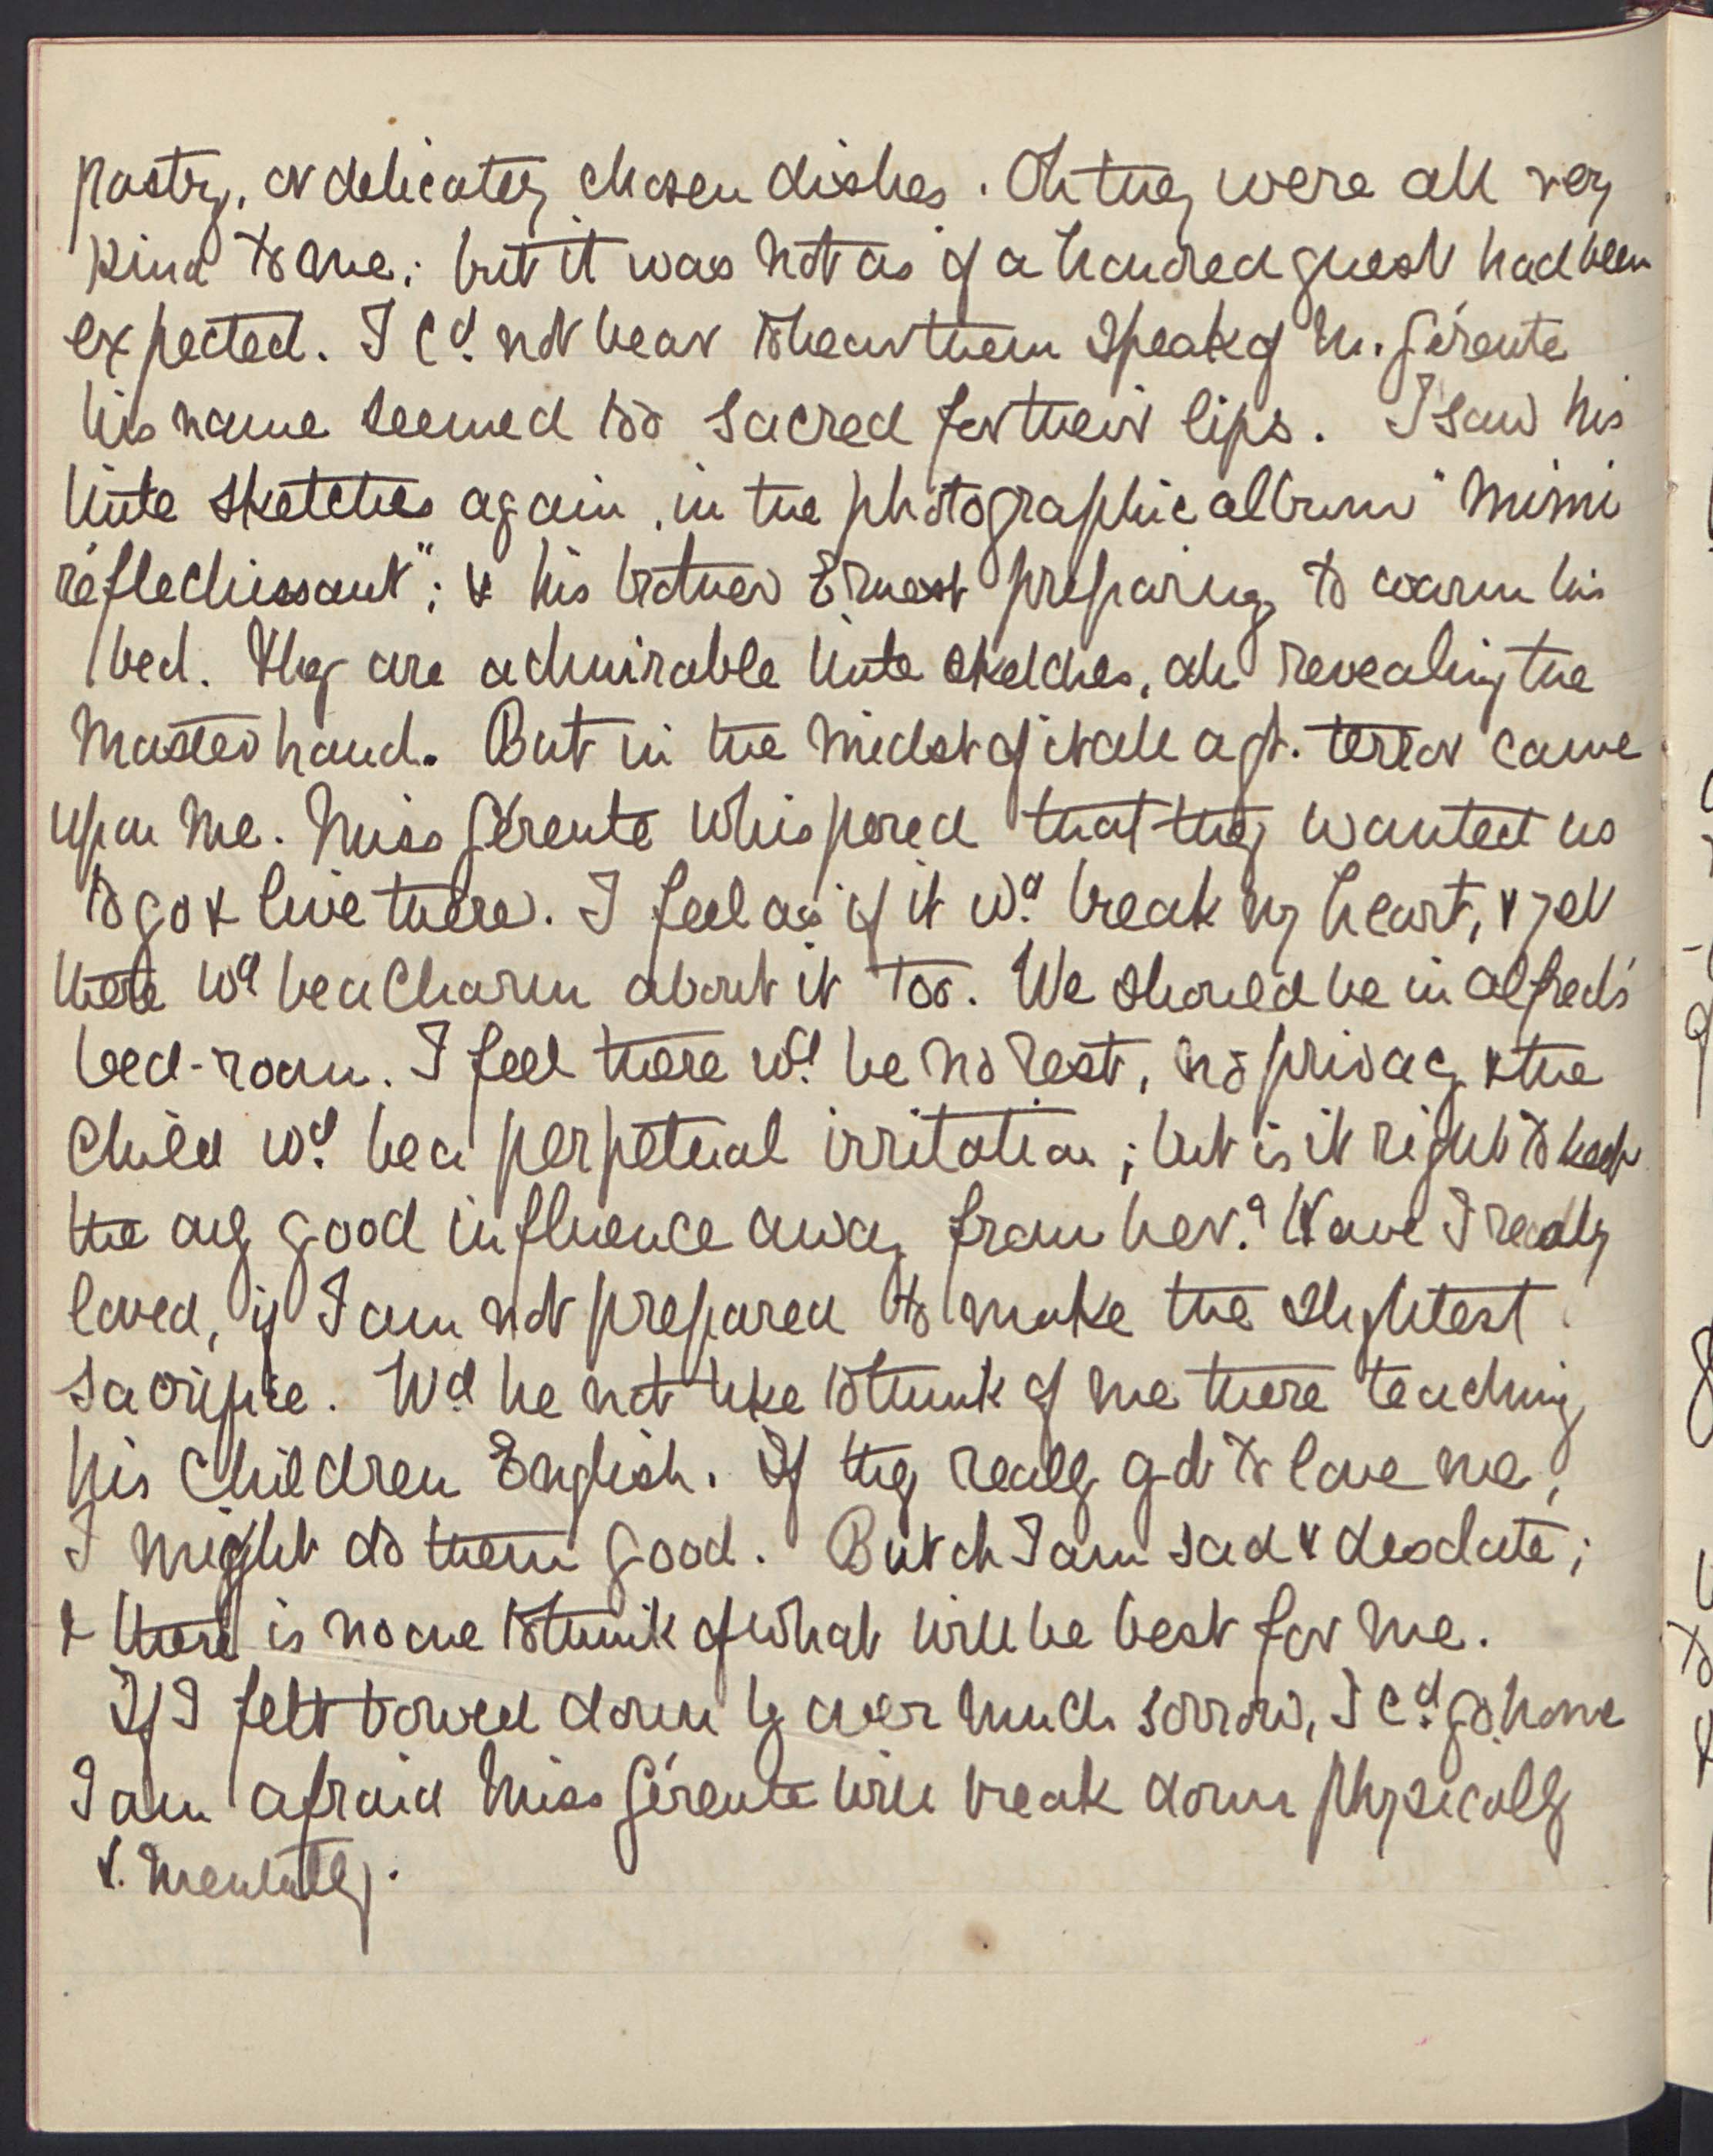 pastry, or delicately chosen dishes. Oh they were all very
kind to me; but it was not as if a honored guest had been
expected. I cd. not bear to hear them speak of M. Gérente
his name seemed too sacred for their lips. I saw his
little sketches again, in the photographic album "Mimi
réflechissant"; & his brother Ernest preparing to warm his
bed. They are admirable little sketches, all revealing the
Master hand. But in the midst of it all a gt. terror came
upon me. Miss Gérente whispered that they wanted us
to go & live there. I feel as if it wd. break my heart, & yet
there wd be a charm about it too. We should be in Alfred's
bed-room. I feel there wd. be no rest, no privacy & the
child wd. be a perpetual irritation; but is it right to keep
the only good influence away from her? Have I really
loved, if I am not prepared to make the slightest
sacrifice. Wd he not like to think of me there teaching
his children English. If they really got to love me,
I might do them good. But oh I am sad & desolate;
& there is no one to think of what will be best for me.
If I felt bowed down by over much sorrow, I cd. go home
I am afraid Miss Gérente will break down physically
&. mentally.